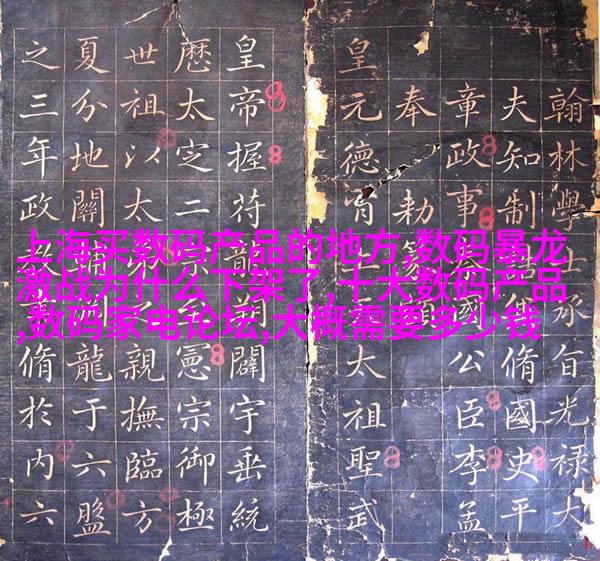 翰林學士承旨光祿大
夫知制脩國史平
章政事國公臣李孟
奉勅篆
皇元德胄太祖聖武
皇帝握符龍朔闢宇垂統
厯太定二憲宗御極
世祖以太弟親撫臨方
夏分地關龍于六盤
之三年政脩於內六
上海买数码产品的地方,数码暴龙
激战为什么下架了,十大数码产品
,数码家电论坛,大概需要多少钱